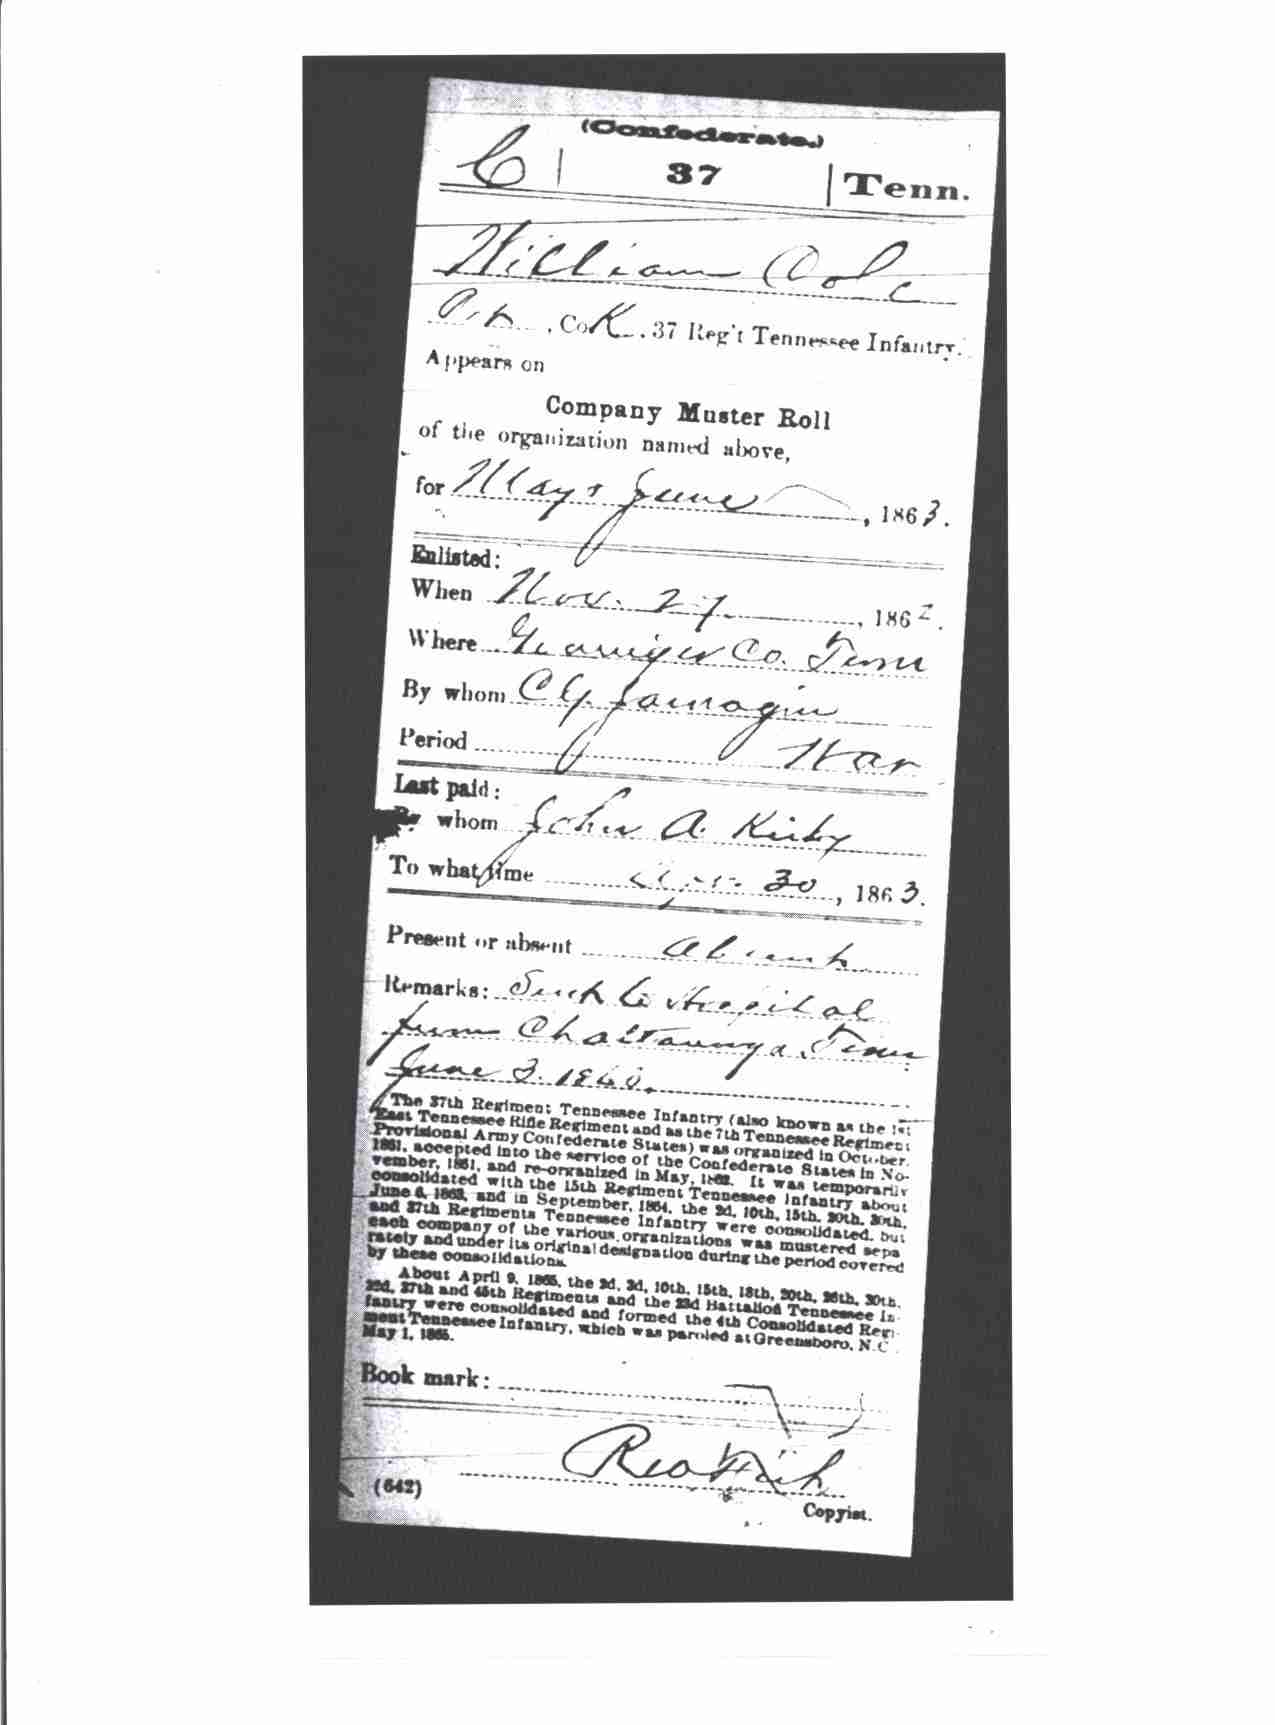 (Confederate.)
C | 37 | Tenn.
William Cole
Pvt, Co K, 37 Reg't Tennessee Infantry.
Appears on
Company Muster Roll
of the organization named above,
for May & June, 1863.
Enlisted:
When Nov. 27, 1862.
Where Grainger Co. Tenn
By whom C G. Jarnagin
Period War
Last paid:
By whom John A. Kirby
To what time Apr. 30, 1863.
Present or absent Absent
Remarks: Sent to Hospital
from Chattanooga Tenn
June 3. 1863.
The 37th Regiment Tennessee Infantry (also known as the 1st
East Tennessee Rifle Regiment and as the 7th Tennessee Regiment
Provisional Army Confederate States) was organized in October,
1861, accepted into the service of the Confederate States in No-
vember, 1861, and re-organized in May, 1862. It was temporarily
consolidated with the 15th Regiment Tennessee Infantry about
June 6, 1863, and in September, 1864, the 2d, 10th, 15th, 20th, 30th,
and 37th Regiments Tennessee Infantry were consolidated, but
each company of the various organizations was mustered sepa
rately and under its original designation during the period covered
by these consolidations.
About April 9, 1865, the 2d, 3d, 10th, 15th, 18th, 20th, 26th, 30th,
32d, 37th and 45th Regiments and the 23d Battalion Tennessee In-
fantry were consolidated and formed the 4th Consolidated Regi-
ment Tennessee Infantry, which was paroled at Greensboro, N.C.
May 1, 1865.
Book mark:
(642)
Copyist.